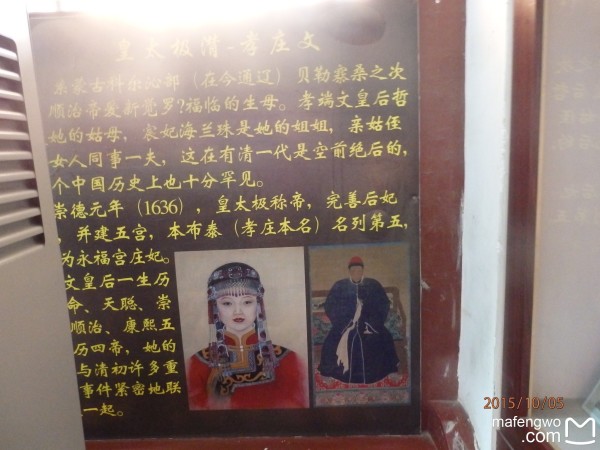 皇太极潜-孝庄文
系蒙古科尔沁部（在今通辽）贝勒寨桑之次
顺治帝爱新觉罗?福临的生母。孝端文皇后哲
她的姑母，宸妃海兰珠是她的姐姐，亲姑侄
女人同事一夫，这在有清一代是空前绝后的，
个中国历史上也十分罕见。
崇德元年（1636），皇太极称帝，完善后妃
，并建五宫，本布泰（孝庄本名）名列第五，
为永福宫庄妃。
文皇后一生历
命、天聪、崇
顺治、康熙五
历四帝，她的
与清初许多重
事件紧密地联
一起。
2015/10/05
mafengwo
.com